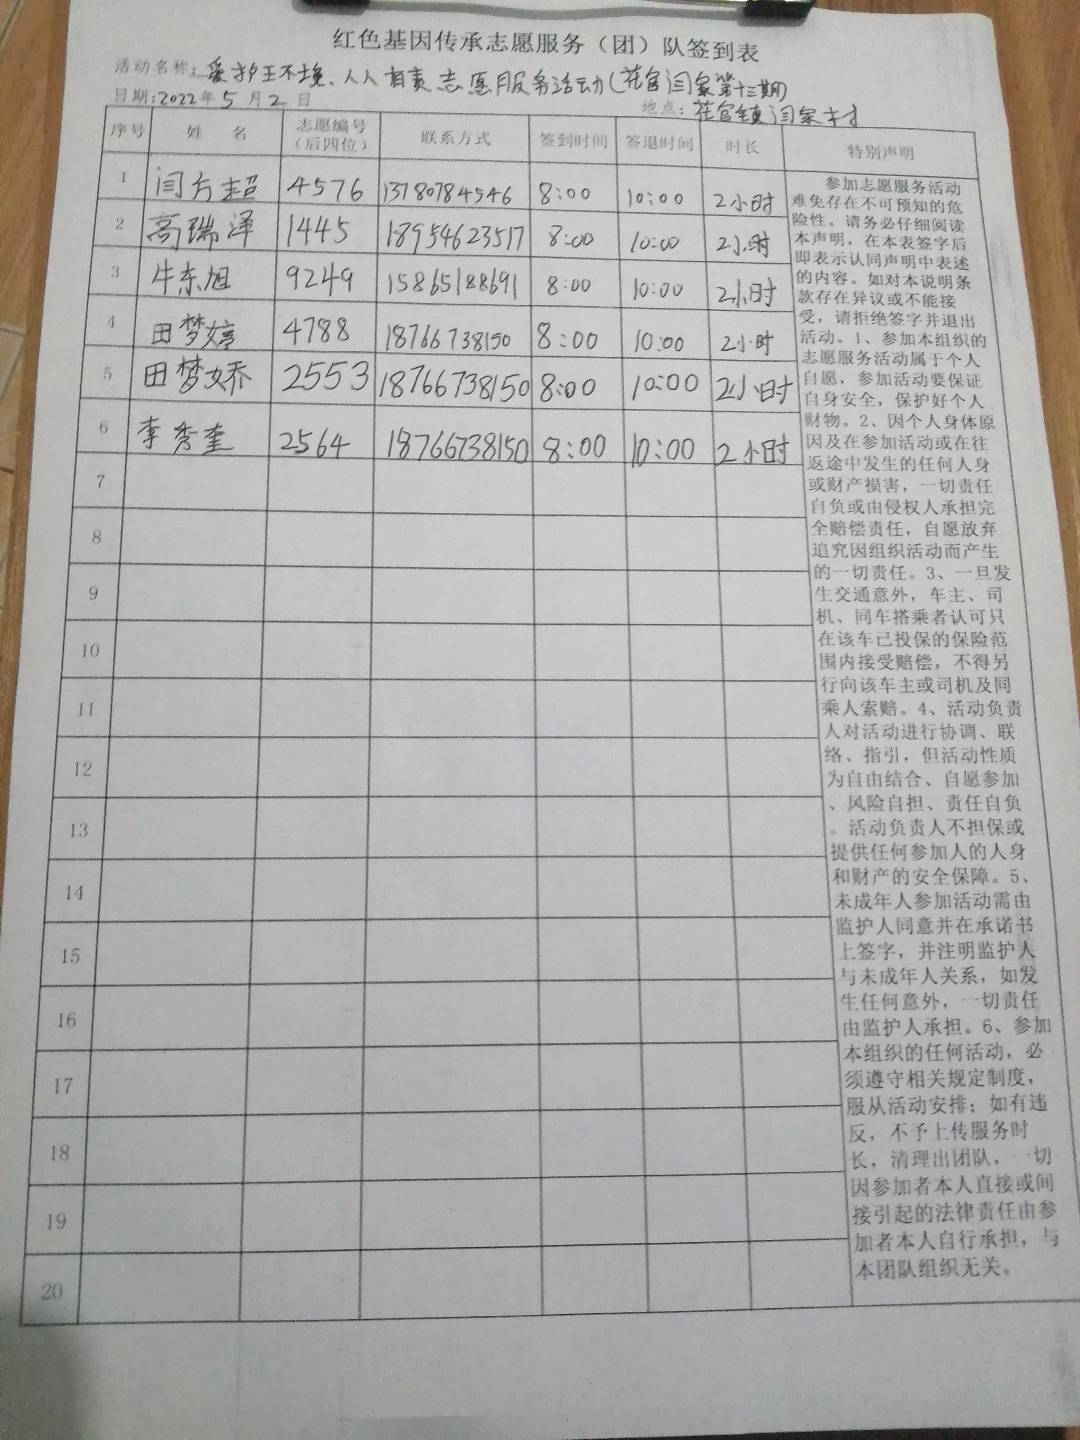 红色基因传承志愿服务（团）队签到表
活动名称：爱护环境、人人有责志愿服务活动（花官闫家第十三期）
日期：2022年5月2日 地点：花官镇闫家村
序号 姓名 志愿编号（后四位） 联系方式 签到时间 签退时间 时长 特别声明
1 闫方超 4576 13780784546 8:00 10:00 2小时
2 高瑞泽 1445 18954623517 8:00 10:00 2小时
3 牛东旭 9249 15865188691 8:00 10:00 2小时
4 田梦婷 4788 18766738150 8:00 10:00 2小时
5 田梦娇 2553 18766738150 8:00 10:00 2小时
6 李秀奎 2564 18766738150 8:00 10:00 2小时
7
8
9
10
11
12
13
14
15
16
17
18
19
20
参加志愿服务活动
难免存在不可预知的危
险性。请务必仔细阅读
本声明，在本表签字后
即表示认同声明中表述
的内容。如对本说明条
款存在异议或不能接
受，请拒绝签字并退出
活动。1、参加本组织的
志愿服务活动属于个人
自愿，参加活动要保证
自身安全，保护好个人
财物。2、因个人身体原
因及在参加活动或在往
返途中发生的任何人身
或财产损害，一切责任
自负或由侵权人承担完
全赔偿责任，自愿放弃
追究因组织活动而产生
的一切责任。3、一旦发
生交通意外，车主、司
机、同车搭乘者认可只
在该车已投保的保险范
围内接受赔偿，不得另
行向该车主或司机及同
乘人索赔。4、活动负责
人对活动进行协调、联
络、指引，但活动性质
为自由结合、自愿参加
、风险自担、责任自负
。活动负责人不担保或
提供任何参加人的人身
和财产的安全保障。5、
未成年人参加活动需由
监护人同意并在承诺书
上签字，并注明监护人
与未成年人关系，如发
生任何意外，一切责任
由监护人承担。6、参加
本组织的任何活动，必
须遵守相关规定制度，
服从活动安排；如有违
反，不予上传服务时
长，清理出团队，一切
因参加者本人直接或间
接引起的法律责任由参
加者本人自行承担，与
本团队组织无关。